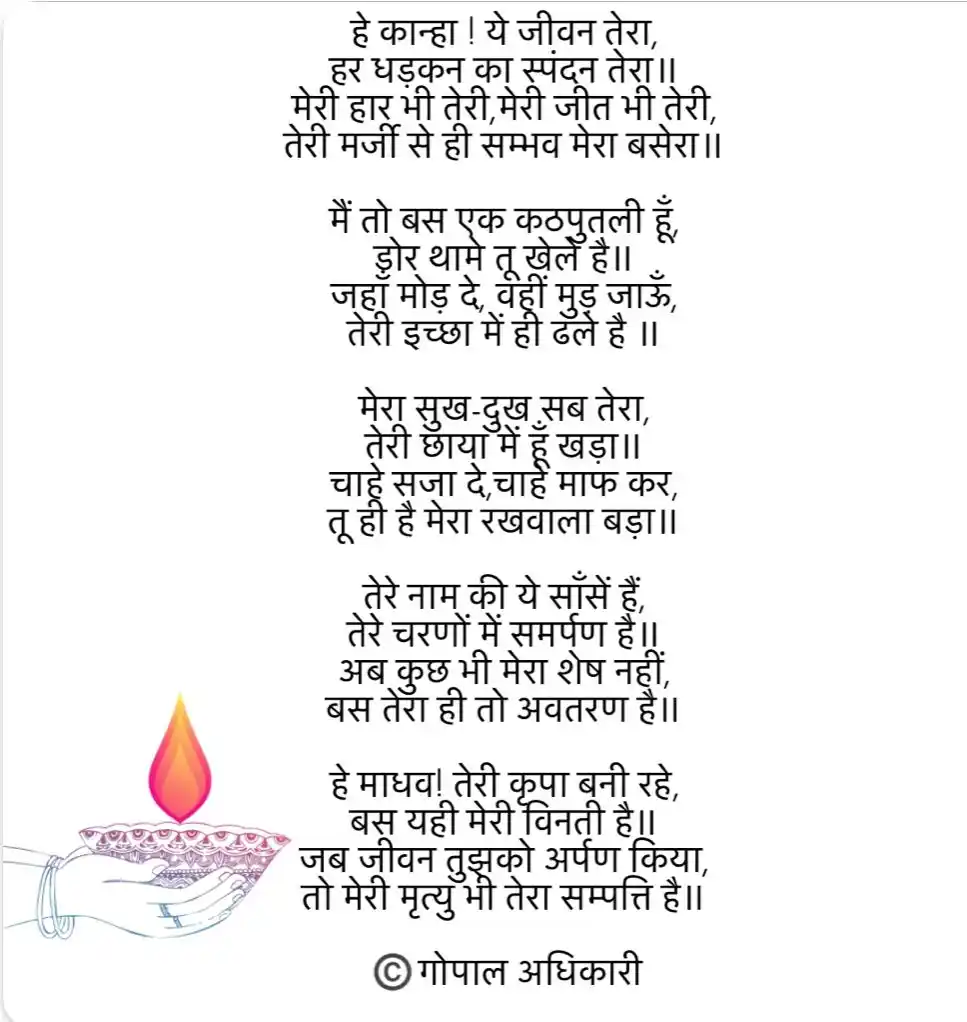 हे कान्हा ! ये जीवन तेरा,
हर धड़कन का स्पंदन तेरा॥
मेरी हार भी तेरी,मेरी जीत भी तेरी,
तेरी मर्जी से ही सम्भव मेरा बसेरा॥
मैं तो बस एक कठपुतली हूँ,
ड़ोर थामे तू खेले है॥
जहाँ मोड़ दे, वहीं मुड़ जाऊँ,
तेरी इच्छा में ही ढले है ॥
मेरा सुख-दुख सब तेरा,
तेरी छाया में हूँ खड़ा॥
चाहे सजा दे,चाहे माफ कर,
तू ही है मेरा रखवाला बड़ा॥
तेरे नाम की ये साँसें हैं,
तेरे चरणों में समर्पण है॥
अब कुछ भी मेरा शेष नहीं,
बस तेरा ही तो अवतरण है॥
हे माधव! तेरी कृपा बनी रहे,
बस यही मेरी विनती है॥
जब जीवन तुझको अर्पण किया,
तो मेरी मृत्यु भी तेरा सम्पत्ति है॥
© गोपाल अधिकारी